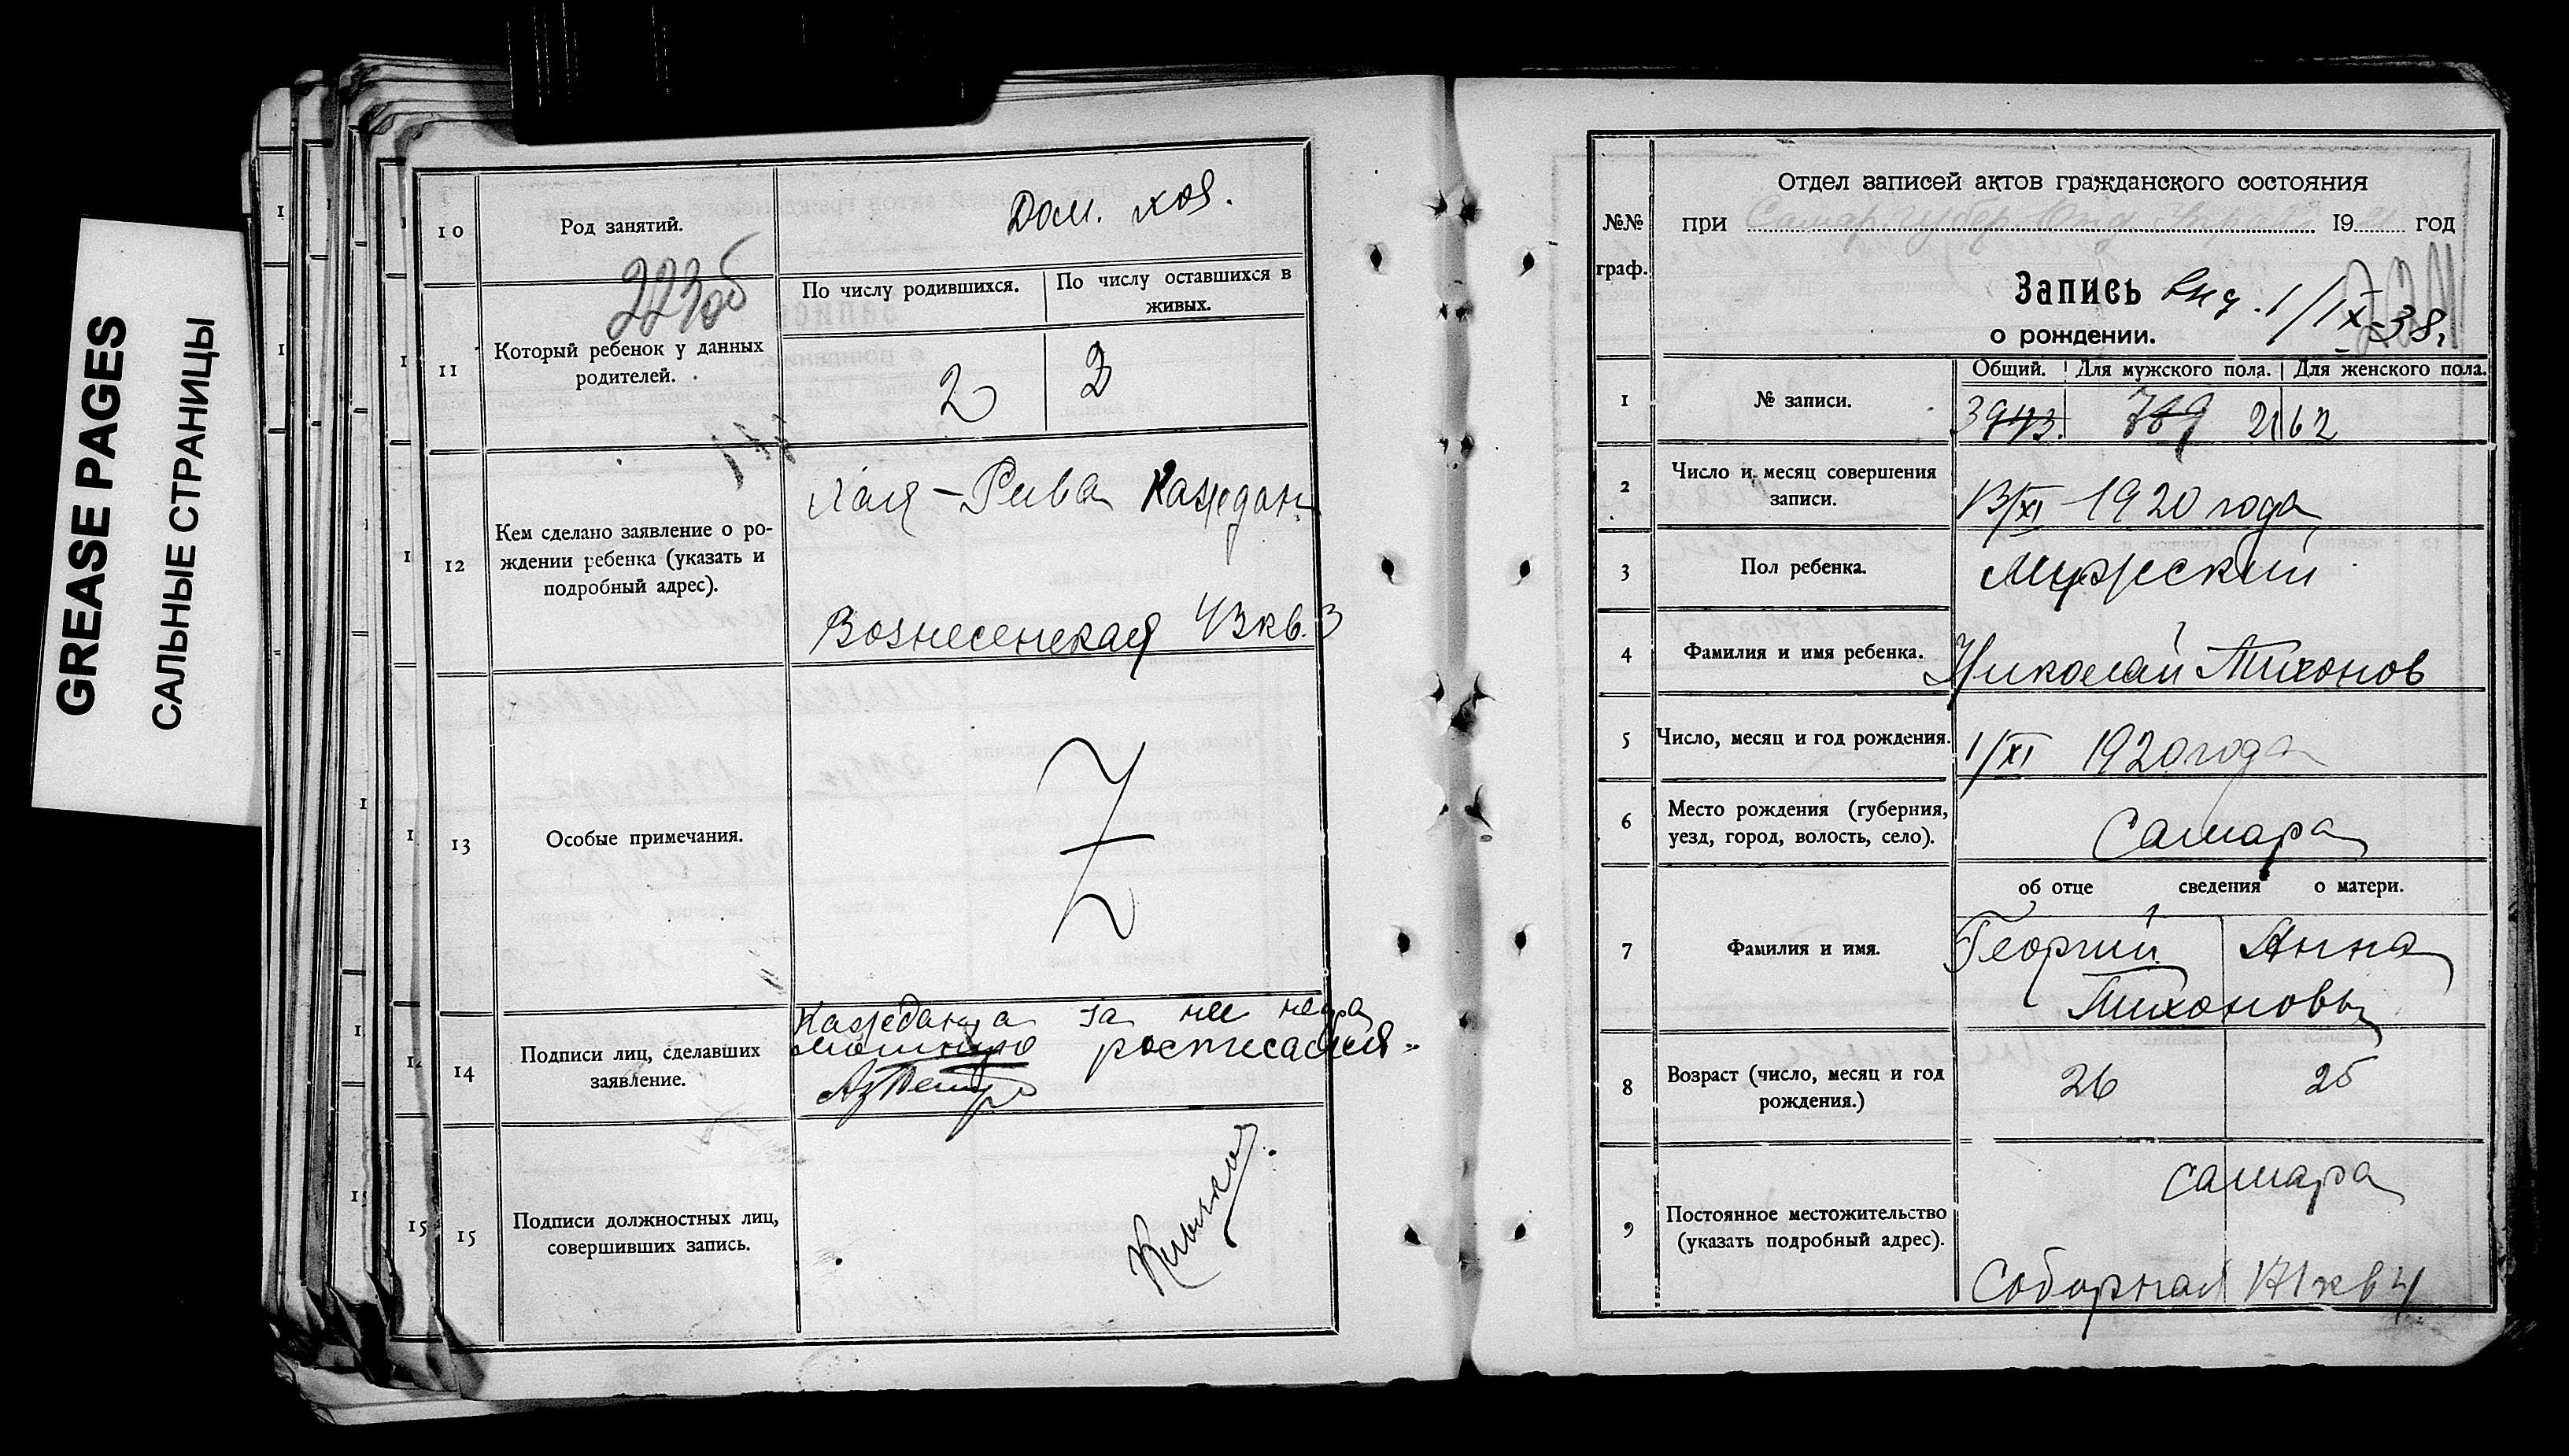 GREASE PAGES
САЛЬНЫЕ СТРАНИЦЫ
10
Род занятий.
Дом. хоз.
11
Который ребенок у данных
родителей.
По числу родившихся.
По числу оставшихся в
живых.
2
2
12
Кем сделано заявление о ро-
ждении ребенка (указать и
подробный адрес).
Хая-Рива Каждан
Вознесенская 43 кв. 3
13
Особые примечания.
14
Подписи лиц, сделавших
заявление.
за нее негра
мотную росписался
15
Подписи должностных лиц,
совершивших запись.
№№
граф.
Отдел записей актов гражданского состояния
при Самар. губер. 19 год
Запись
о рождении.
1/IX-38.
1
№ записи.
Общий.
Для мужского пола.
Для женского пола.
3943.
789 2162
2
Число и месяц совершения
записи.
13/XI 1920 года
3
Пол ребенка.
Мужеский
4
Фамилия и имя ребенка.
Николай Тихонов
5
Число, месяц и год рождения.
1/XI 1920 года
6
Место рождения (губерния,
уезд, город, волость, село).
Самара
об отце сведения о матери.
7
Фамилия и имя.
Георгий Анна
Тихоновы
8
Возраст (число, месяц и год
рождения.)
26
25
9
Постоянное местожительство
(указать подробный адрес).
Самара
Соборная 171 кв 4